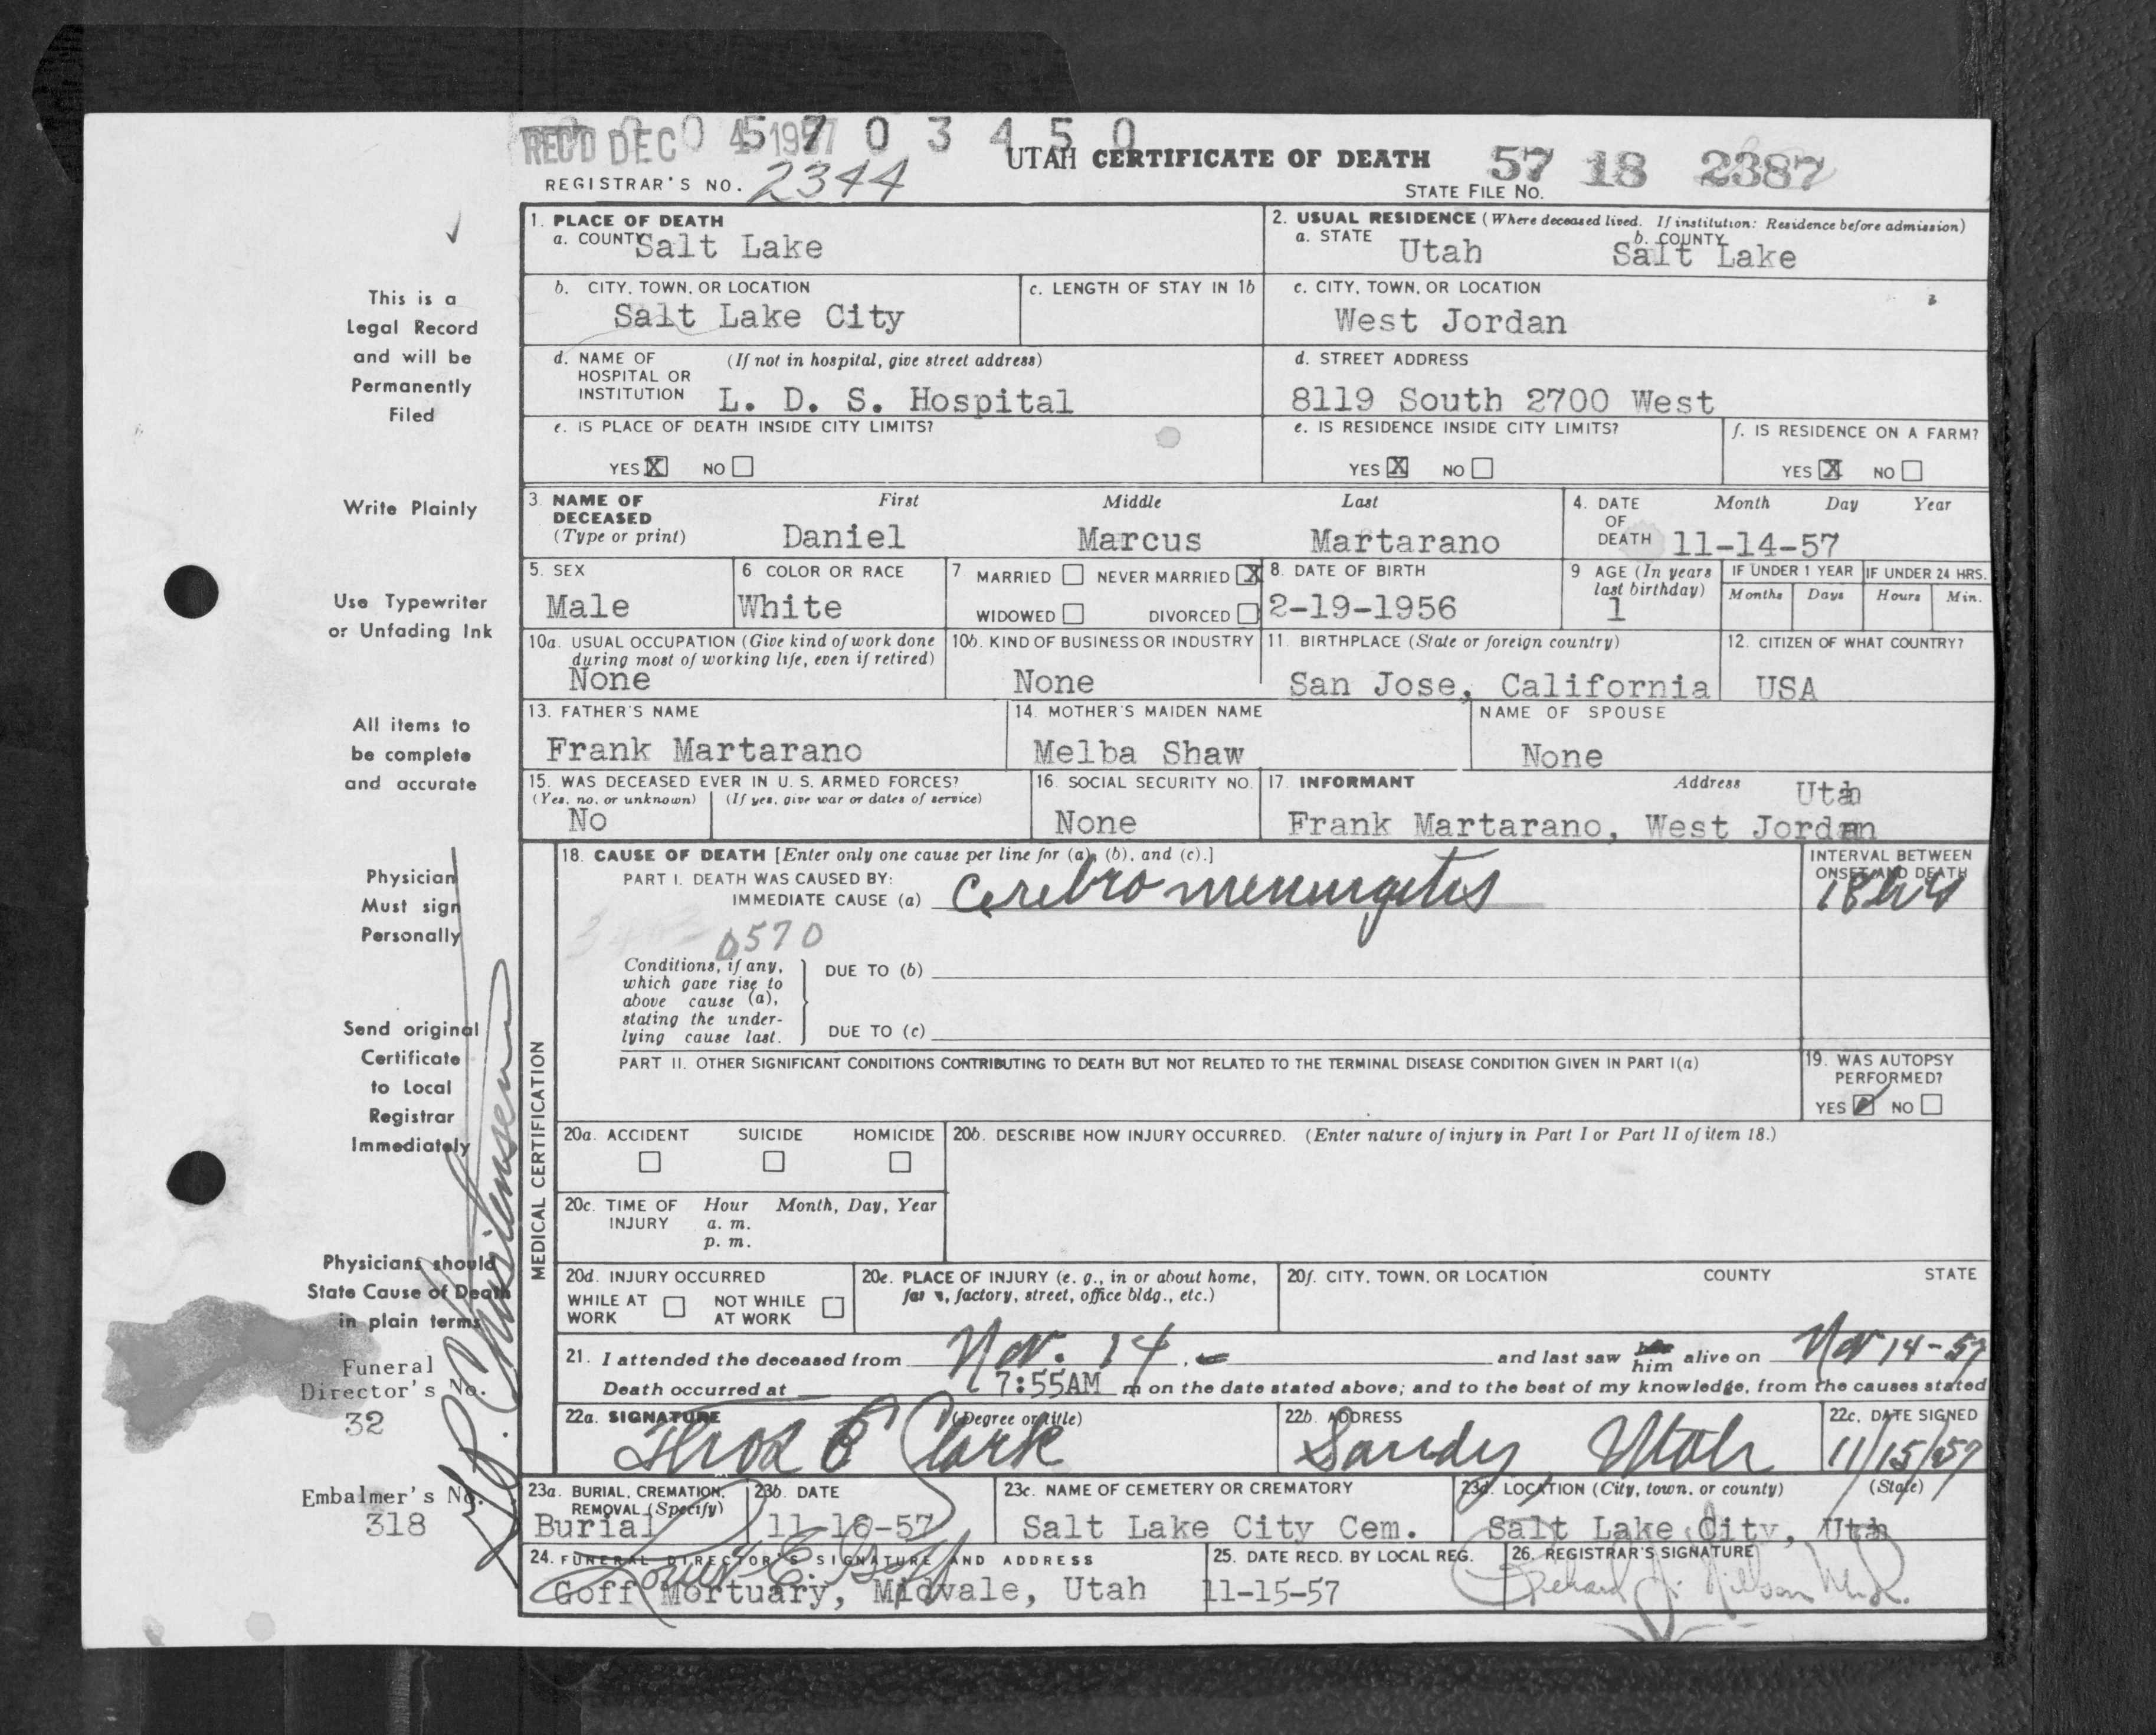 REC'D DEC 4 1957
0 5 7 0 3 4 5 0
UTAH CERTIFICATE OF DEATH
57 18 2387
REGISTRAR'S NO. 2344
STATE FILE NO.
1. PLACE OF DEATH
a. COUNTY Salt Lake
2. USUAL RESIDENCE (Where deceased lived. If institution: Residence before admission)
a. STATE Utah b. COUNTY Salt Lake
b. CITY, TOWN, OR LOCATION
Salt Lake City
c. LENGTH OF STAY IN 1b
c. CITY, TOWN, OR LOCATION
West Jordan
d. NAME OF HOSPITAL OR INSTITUTION (If not in hospital, give street address)
L. D. S. Hospital
d. STREET ADDRESS
8119 South 2700 West
e. IS PLACE OF DEATH INSIDE CITY LIMITS?
YES X NO
e. IS RESIDENCE INSIDE CITY LIMITS?
YES X NO
f. IS RESIDENCE ON A FARM?
YES X NO
3. NAME OF DECEASED (Type or print)
First Middle Last
Daniel Marcus Martarano
4. DATE OF DEATH Month Day Year
11-14-57
5. SEX
Male
6 COLOR OR RACE
White
7 MARRIED NEVER MARRIED X
WIDOWED DIVORCED
8. DATE OF BIRTH
2-19-1956
9 AGE (In years last birthday)
1
IF UNDER 1 YEAR
Months Days
IF UNDER 24 HRS.
Hours Min.
10a. USUAL OCCUPATION (Give kind of work done during most of working life, even if retired)
None
10b. KIND OF BUSINESS OR INDUSTRY
None
11. BIRTHPLACE (State or foreign country)
San Jose, California
12. CITIZEN OF WHAT COUNTRY?
USA
13. FATHER'S NAME
Frank Martarano
14. MOTHER'S MAIDEN NAME
Melba Shaw
NAME OF SPOUSE
None
15. WAS DECEASED EVER IN U. S. ARMED FORCES?
(Yes, no, or unknown) (If yes, give war or dates of service)
No
16. SOCIAL SECURITY NO.
None
17. INFORMANT Address
Utah
Frank Martarano, West Jordan
18. CAUSE OF DEATH [Enter only one cause per line for (a), (b), and (c).]
PART I. DEATH WAS CAUSED BY:
IMMEDIATE CAUSE (a) Cerebro meningitis
INTERVAL BETWEEN ONSET AND DEATH
18 hrs
0570
Conditions, if any, which gave rise to above cause (a), stating the underlying cause last.
DUE TO (b)
DUE TO (c)
PART II. OTHER SIGNIFICANT CONDITIONS CONTRIBUTING TO DEATH BUT NOT RELATED TO THE TERMINAL DISEASE CONDITION GIVEN IN PART I(a)
19. WAS AUTOPSY PERFORMED?
YES NO
20a. ACCIDENT SUICIDE HOMICIDE
20b. DESCRIBE HOW INJURY OCCURRED. (Enter nature of injury in Part I or Part II of item 18.)
20c. TIME OF INJURY Hour Month, Day, Year
a. m.
p. m.
20d. INJURY OCCURRED
WHILE AT WORK NOT WHILE AT WORK
20e. PLACE OF INJURY (e. g., in or about home, farm, factory, street, office bldg., etc.)
20f. CITY, TOWN, OR LOCATION COUNTY STATE
21. I attended the deceased from Nov. 14, and last saw him alive on Nov 14-57
Death occurred at 7:55AM m on the date stated above; and to the best of my knowledge, from the causes stated
22a. SIGNATURE (Degree or title)
Thos E Clark
22b. ADDRESS
Sandy Utah
22c. DATE SIGNED
11/15/57
23a. BURIAL, CREMATION, REMOVAL (Specify)
Burial
23b. DATE
11-16-57
23c. NAME OF CEMETERY OR CREMATORY
Salt Lake City Cem.
23d. LOCATION (City, town, or county) (State)
Salt Lake City, Utah
24. FUNERAL DIRECTOR'S SIGNATURE AND ADDRESS
Goff Mortuary, Midvale, Utah
25. DATE RECD. BY LOCAL REG.
11-15-57
26. REGISTRAR'S SIGNATURE
Richard J. Nilsson M.D.
MEDICAL CERTIFICATION
This is a
Legal Record
and will be
Permanently
Filed
Write Plainly
Use Typewriter
or Unfading Ink
All items to
be complete
and accurate
Physician
Must sign
Personally
Send original
Certificate
to Local
Registrar
Immediately
Physicians should
State Cause of Death
in plain terms
Funeral
Director's No.
32
Embalmer's No.
318
Christensen